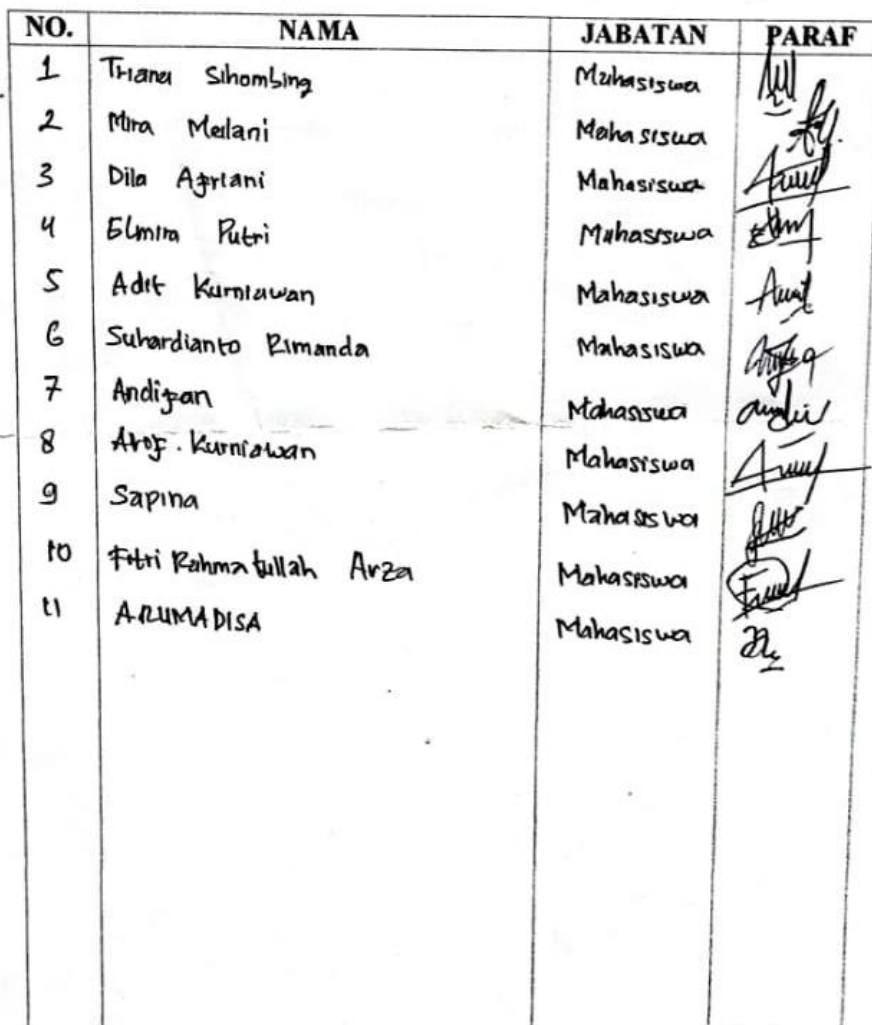 NO. NAMA JABATAN PARAF
1 Triana Sihombing Mahasiswa
2 Mira Meilani Mahasiswa
3 Dila Apriani Mahasiswa
4 Elmira Putri Mahasiswa
5 Adit Kurniawan Mahasiswa
6 Suhardianto Rimanda Mahasiswa
7 Andipan Mahasiswa
8 Kurniawan Mahasiswa
9 Sapina Mahasiswa
10 Fitri Rahmatullah Arza Mahasiswa
11 ARUMADISA Mahasiswa